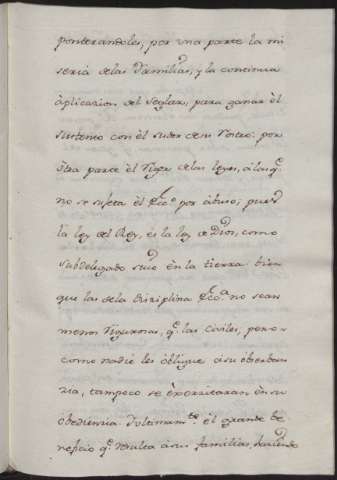 ponderandoles, por vna parte la mi
seria de las Familias, y la continua
àplicacion del Seglar, para ganar èl
sustento con èl sudor de su rostro: por
òtra parte èl rigor de las leyes, à las q.^e
no se sujeta èl Ecc.^o por abuso, pues
la ley del Rey, es la ley de Dios, como
subdelegado suio èn la tierra bien
que las de la Disciplina Ecc.^a no sean
menos rigurosas, q.^e las civiles, pero
como nadie les òbligue à su òbservan
zia, tampoco se èxercitaran èn su
òbediencia. Vltimam.^te èl grande be
neficio q.^e resulta à sus familias, haciendo